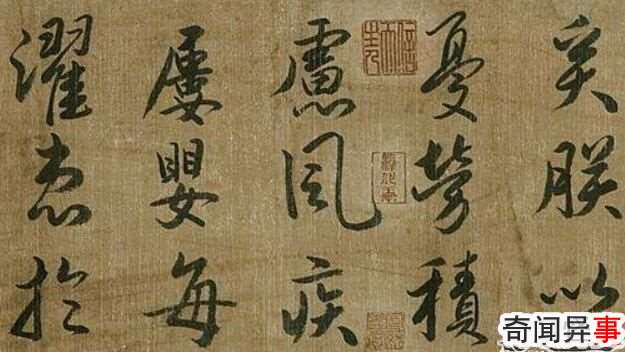 矣朕以
憂勞積
慮風疾
屢嬰每
濯患於
奇闻异事